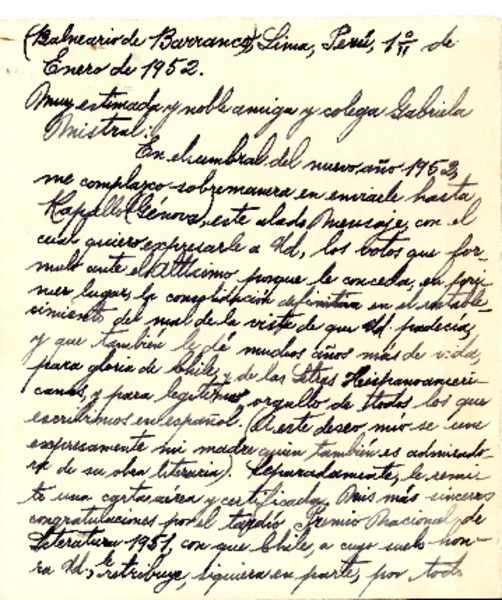 (Balneario de Barranco), Lima, Perú, 1º de
Enero de 1952.
Muy estimada y noble amiga y colega Gabriela
Mistral:
En el umbral del nuevo año 1952,
me complazco sobremanera en enviarle hasta
Rapallo (Génova), este alado Mensaje, con el
cual quiero expresarle a Ud, los votos que for-
mulo ante el Altísimo porque le conceda, en pri-
mer lugar, la consolidación definitiva en el restable-
cimiento del mal de la vista de que Ud. padecía,
y que también le dé muchos años más de vida,
para gloria de Chile, y de las Letras Hispanoameri-
canas, y para legítimo orgullo de todos los que
escribimos en español. (A este deseo mío se une
expresamente mi madre quien también es admirado-
ra de su obra literaria). Separadamente, le remi-
tí una carta aérea y certificada. Mis más sinceras
congratulaciones por el tardío Premio Nacional de
Literatura 1951, con que Chile, a cuyo suelo hon-
ra Ud., le retribuye, siquiera en parte, por todo